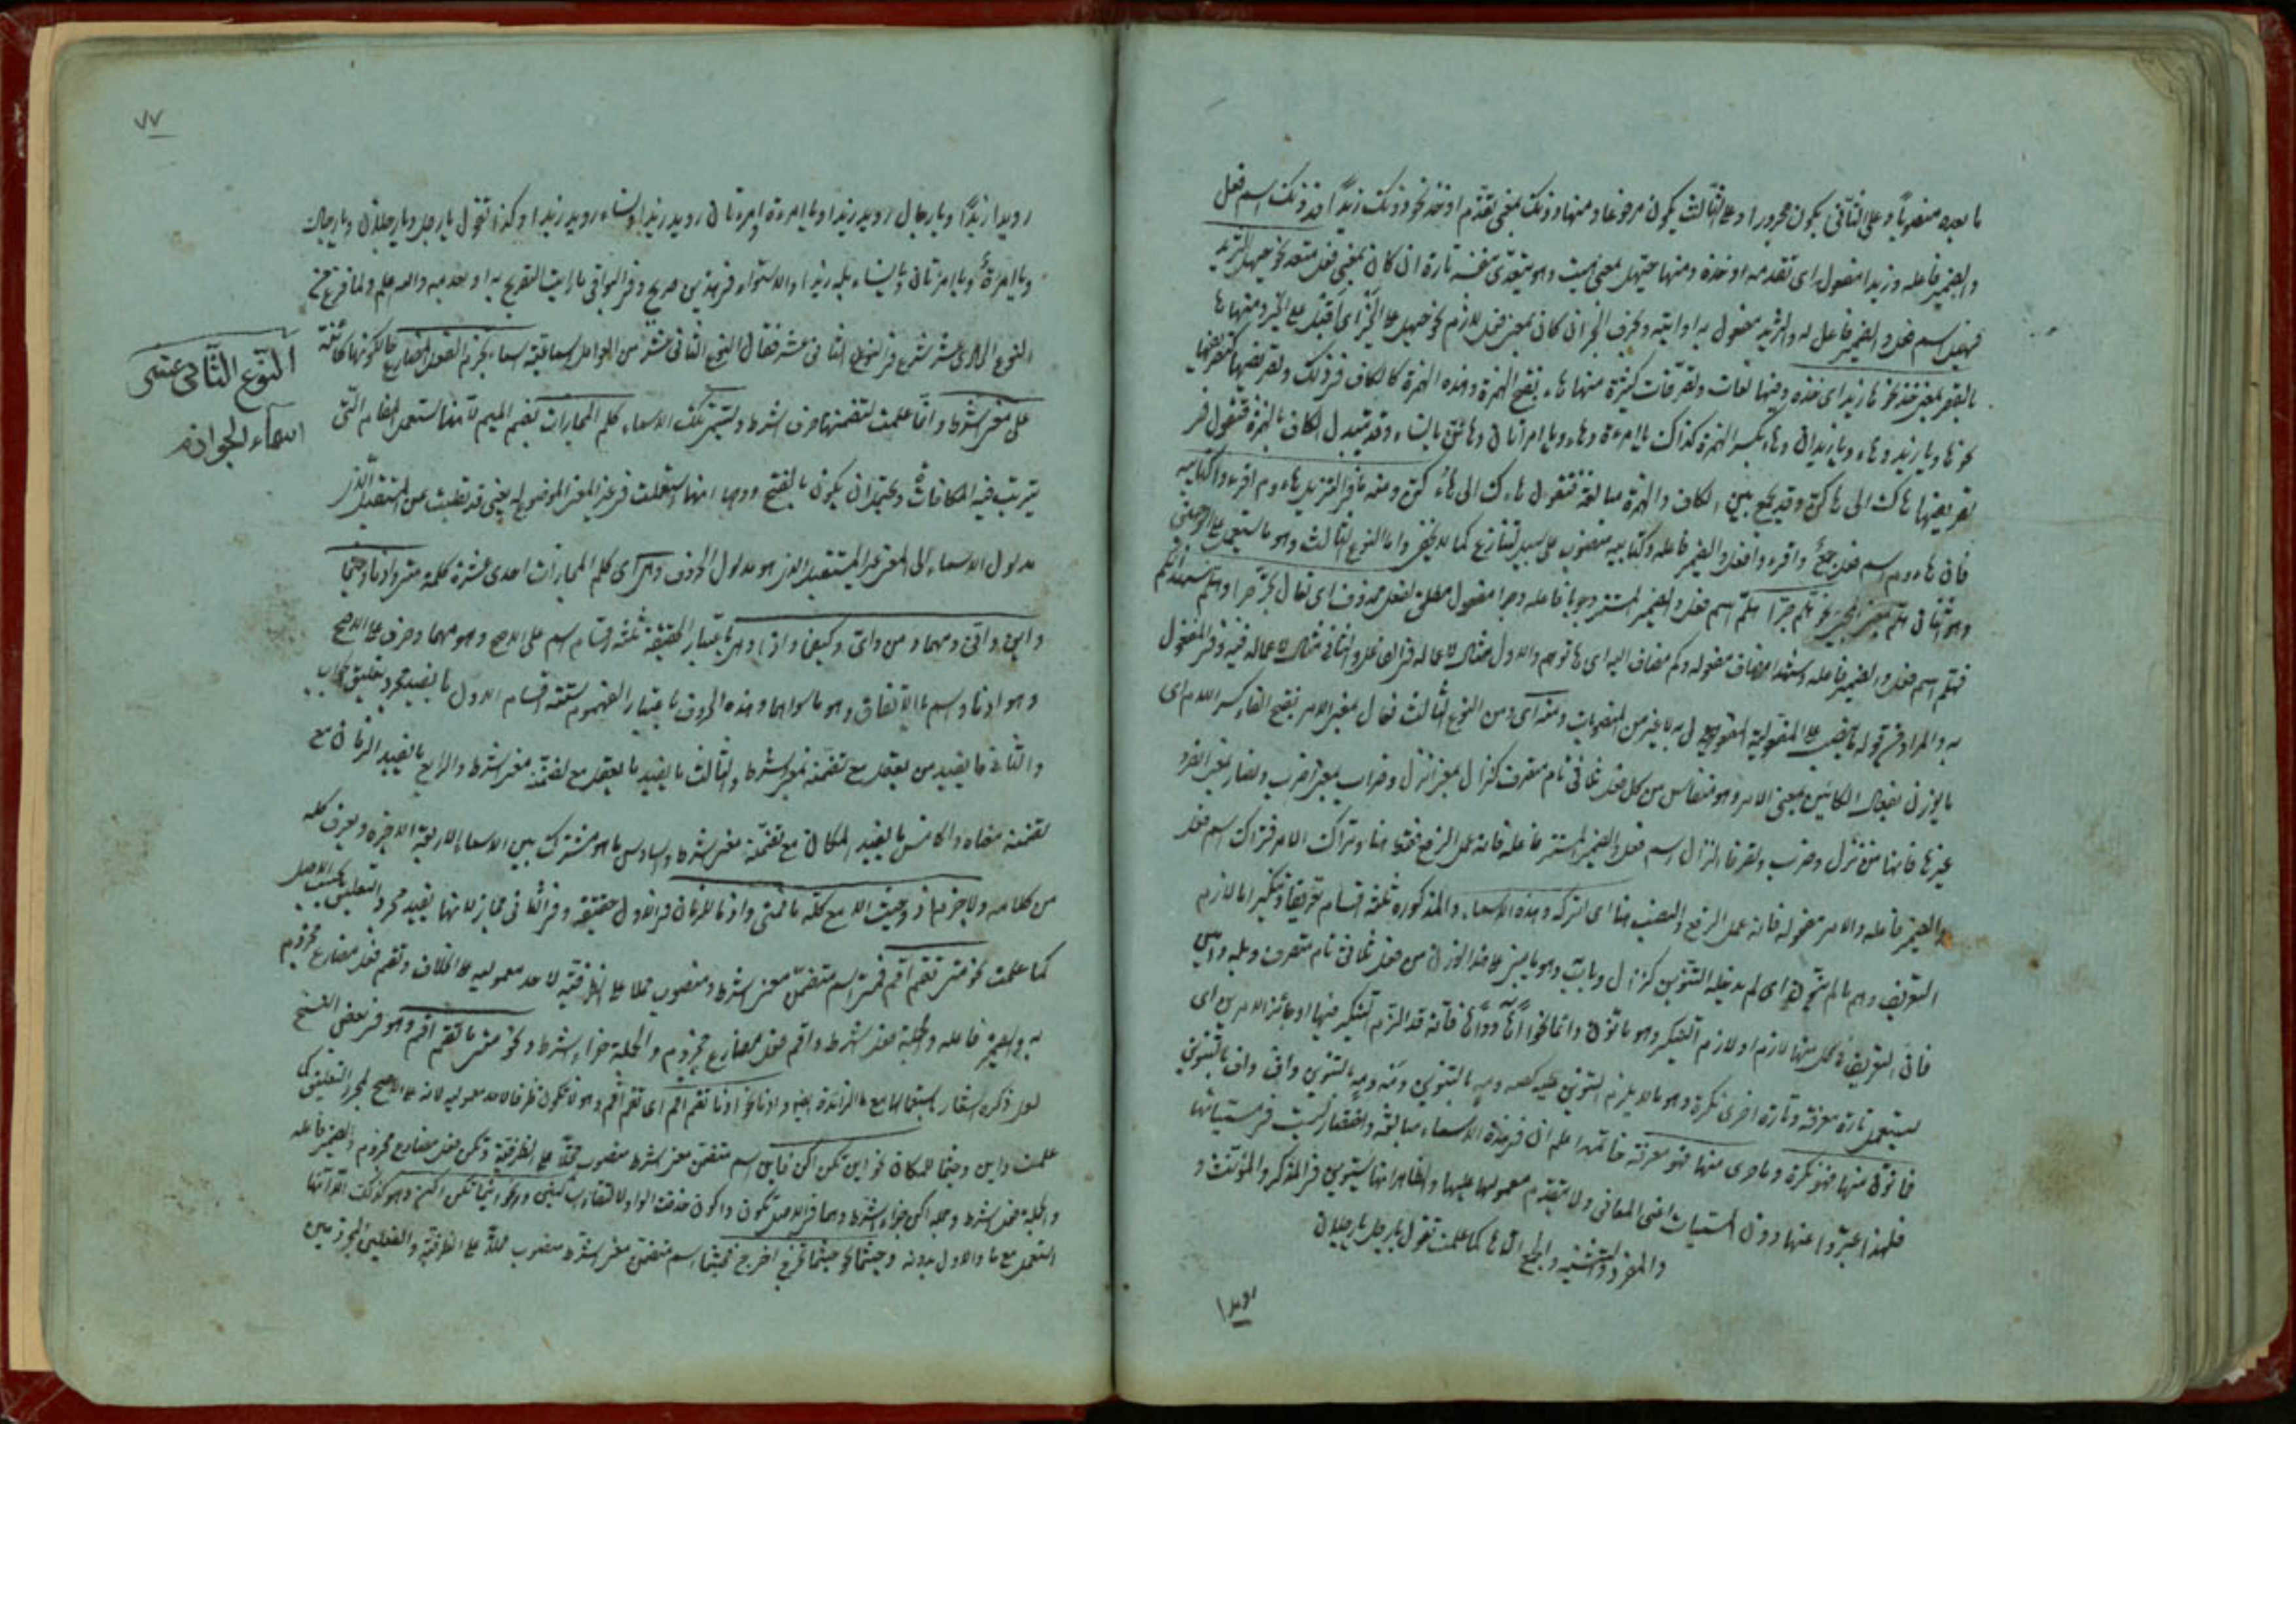 ما بعده منصوباً وعلى الثاني يكون مجرورا وعلى الثالث يكون مرفوعا ومنها دونك بمعنى تقدّم او خذ نحو دونك زيداً فدونك اسم فعل
والضمير فاعله وزيدا مفعول اى تقدمه او خذه ومنها حيّهل بمعنى ايت وهو يتعدى بنفسه تارة ان كان بمعنى فعل متعد نحو حيهل الثريد
فحيهل اسم فعل والضمير فاعل له والثريد مفعول به اى ايته وبحرف الجر ان كان بمعنى فعل لازم نحو حيهل على الخير اى اقبل على الخير ومنها ها
بالقصر بمعنى خذ نحو ها زيدا اى خذه وفيها لغات وتصرفات كثيرة منها هاء بفتح الهمزة وهذه الهمزة كالكاف فى ذلك وتصريفها كتصريفها
نحو هاء يا زيد وهاء ويا زيدان وهاء بكسر الهمزة كذاك يا امرءة وهاء ويا امرأتان وهائن يا نساء وقد تبدل الكاف بالهمزة فتقول فى
تصريفها هاك الى هاكن وقد يجمع بين الكاف والهمزة مبالغة فتقول هاءك الى هاءكن ومنه ما فى التنزيل هاءوم اقرءوا كتابيه
فان هاءوم اسم فعل جمع واقرءوا فعل والضمير فاعله وكتابيه منصوب على سبيل التنازع كما لا يخفى واما النوع الثالث وهو ما يستعمل على الوجهين
وهو اثنان هلم بمعنى نحو هلم جرّا هلم اسم فعل والضمير المستتر وجوبا فاعله وجرا مفعول مطلق لفعل محذوف اى تعال جرّ جرا وهلم شهدائكم
فهلم اسم فعل والضمير فاعله وشهداء المضاف مفعوله وكم مضاف اليه اى هاتوهم والاول مثال لاعماله فى الفاعل والثانى مثال لاعماله فيه وفى المفعول
ومن النوع الثالث فعال بمعنى الامر بفتح الفاء وكسر اللام اى
ما يوزن بفعال الكائن بمعنى الامر وهو منقاس من كل فعل ثلاثى تام متصرف كنزال بمعنى انزل وضراب بمعنى اضرب ونصار بمعنى انصر
غيرها فانها من نزل وضرب ونصر فانزال اسم فعل والضمير المستتر فاعله فانه عمل الرفع فقط هنا وتراك الامر فتراك اسم فعل
والضمير فاعله والامر مفعوله فانه عمل الرفع والنصب هنا اى اتركه وهذه الاسماء المذكورة ثلثة اقسام تعريفا وتنكيرا اما لازم
التعريف وهو ما لم ينون اى لم يدخله التنوين كنزال وبابه وهو ما يبنى على هذا الوزن من فعل ثلاثى تام متصرف وبله وآمين
فان التعريف فى كل منها لازم او لازم التنكير وهو ما نون دائما نحو ايهاً وواهاً فانه قد التزم التنكير فيها او جائز الامرين اى
يستعمل تارة معرفة وتارة اخرى نكرة وهو ما لا يلزم التنوين عليه كصه وصهٍ بالتنوين ومه ومهٍ بالتنوين واف واف بالتنوين
فما نون منها فهو نكرة وما عرى منها فهو معرفة خاتمة اعلم ان فى هذه الاسماء مبالغة واختصارا ليست فى مسمياتها
فلهذا عبّروا عنها دون المسميات اعنى المعانى ولا يتقدم معمولها عليها والظاهر انها يستوين فى المذكر والمؤنث و
والمفرد والتثنية والجمع الا ها كما علمت تقول يا رجل يا رجلان
رويدا
٧٧
رويدا زيداً ويا رجال رويد زيدا ويا امرءة وامرءتان رويد زيدا ونساء رويد زيدا وكذا تقول يا رجل ويا رجلان ويا رجال
ويا امرأة ويا امرأتان ويا نساء بله زيدا والاستواء فى هذين صريح وفى البواقى ما رايت التصريح به او بعدمه والله اعلم ولما فرغ من
النوع الحادى عشر شرع فى النوع الثانى عشر فقال النوع الثانى عشر من العوامل السماعية اسماء تجزم الفعل المضارع حال كونها كائنة
النوع الثانى عشر
اسماء الجوازم
على معنى الشرط وانما عملت لتضمنها حرف الشرط وتسمى تلك الاسماء كلم المجازات بضم الميم لانها تستعمل لمقام التى
يترتب فيه المكافات ويحتمل ان يكون بالفتح ووجهه انها استعملت فى غير المعنى الموضوع له يعنى قد نقلت عن المستقبل الذى
مدلول الاسماء الى المعنى غير المستقبل الذى هو مدلول الحروف وهى اى كلم المجازات احدى عشرة كلمة متى واذما وحيثما
واين وانّى ومهما ومن واىّ وكيفما واذا وهى باعتبار الحقيقة ثلثة اقسام اسم على الاصح وهو مهما وحرف على الاصح
وهو اذما واسم بالاتفاق وهو ما سواهما وهذه الحروف باعتبار المفهوم ستة اقسام الاول ما يفيد مجرد تعليق الجواب
والثانى ما يفيد من يعقل مع تضمنه معنى الشرط والثالث ما يفيد ما يعقل مع تضمنه معنى الشرط والرابع ما يفيد الزمان مع
تضمنه معناه والخامس ما يفيد المكان مع تضمنه معنى الشرط والسادس ما هو مشترك بين الاسماء الاربعة الاخيرة ويعرف كله
من كلامه ولا جزم اذ وحيث الا مع كلمة ما فمتى واذما للزمان فى الاول حقيقة وفى الثانى مجاز لانها تفيد مجرد التعليق بحسب الاصل
كما علمت نحو متى تقم اقم فمتى اسم متضمن معنى الشرط ومنصوب محلا على الظرفية لاحد معموليه على الخلاف وتقم فعل مضارع مجزوم
به والضمير فاعله والجملة فعل الشرط واقم فعل مضارع مجزوم والجملة جزاء الشرط ونحو متى ما تقم اقم وهو فى بعض النسخ
ولعل ذكره اشعار باستعمالها مع ما الزائدة ايضا واذما نحو اذما تقم اقم اى تقم اقم وهو لا تكون ظرفا لاحد معموليه لانه على الاصح لمجرد التعليق كما
علمت واين وحيثما للمكان نحو اين تكن اكن فاين اسم متضمن معنى الشرط منصوب محلا على الظرفية وتكن فعل مضارع مجزوم والضمير فاعله
والجملة فعل الشرط وجملة اكن جزاء الشرط وهما فى الاصل تكون واكون حذفت الواو لالتقاء الساكنين ونحو اينما تكن اكن وهو كذلك الا انها
استعمل مع ما والاول بدونه وحيثما نحو حيثما تخرج اخرج فحيثما اسم متضمن معنى الشرط منصوب محلا على الظرفية والفعلين المجزومين